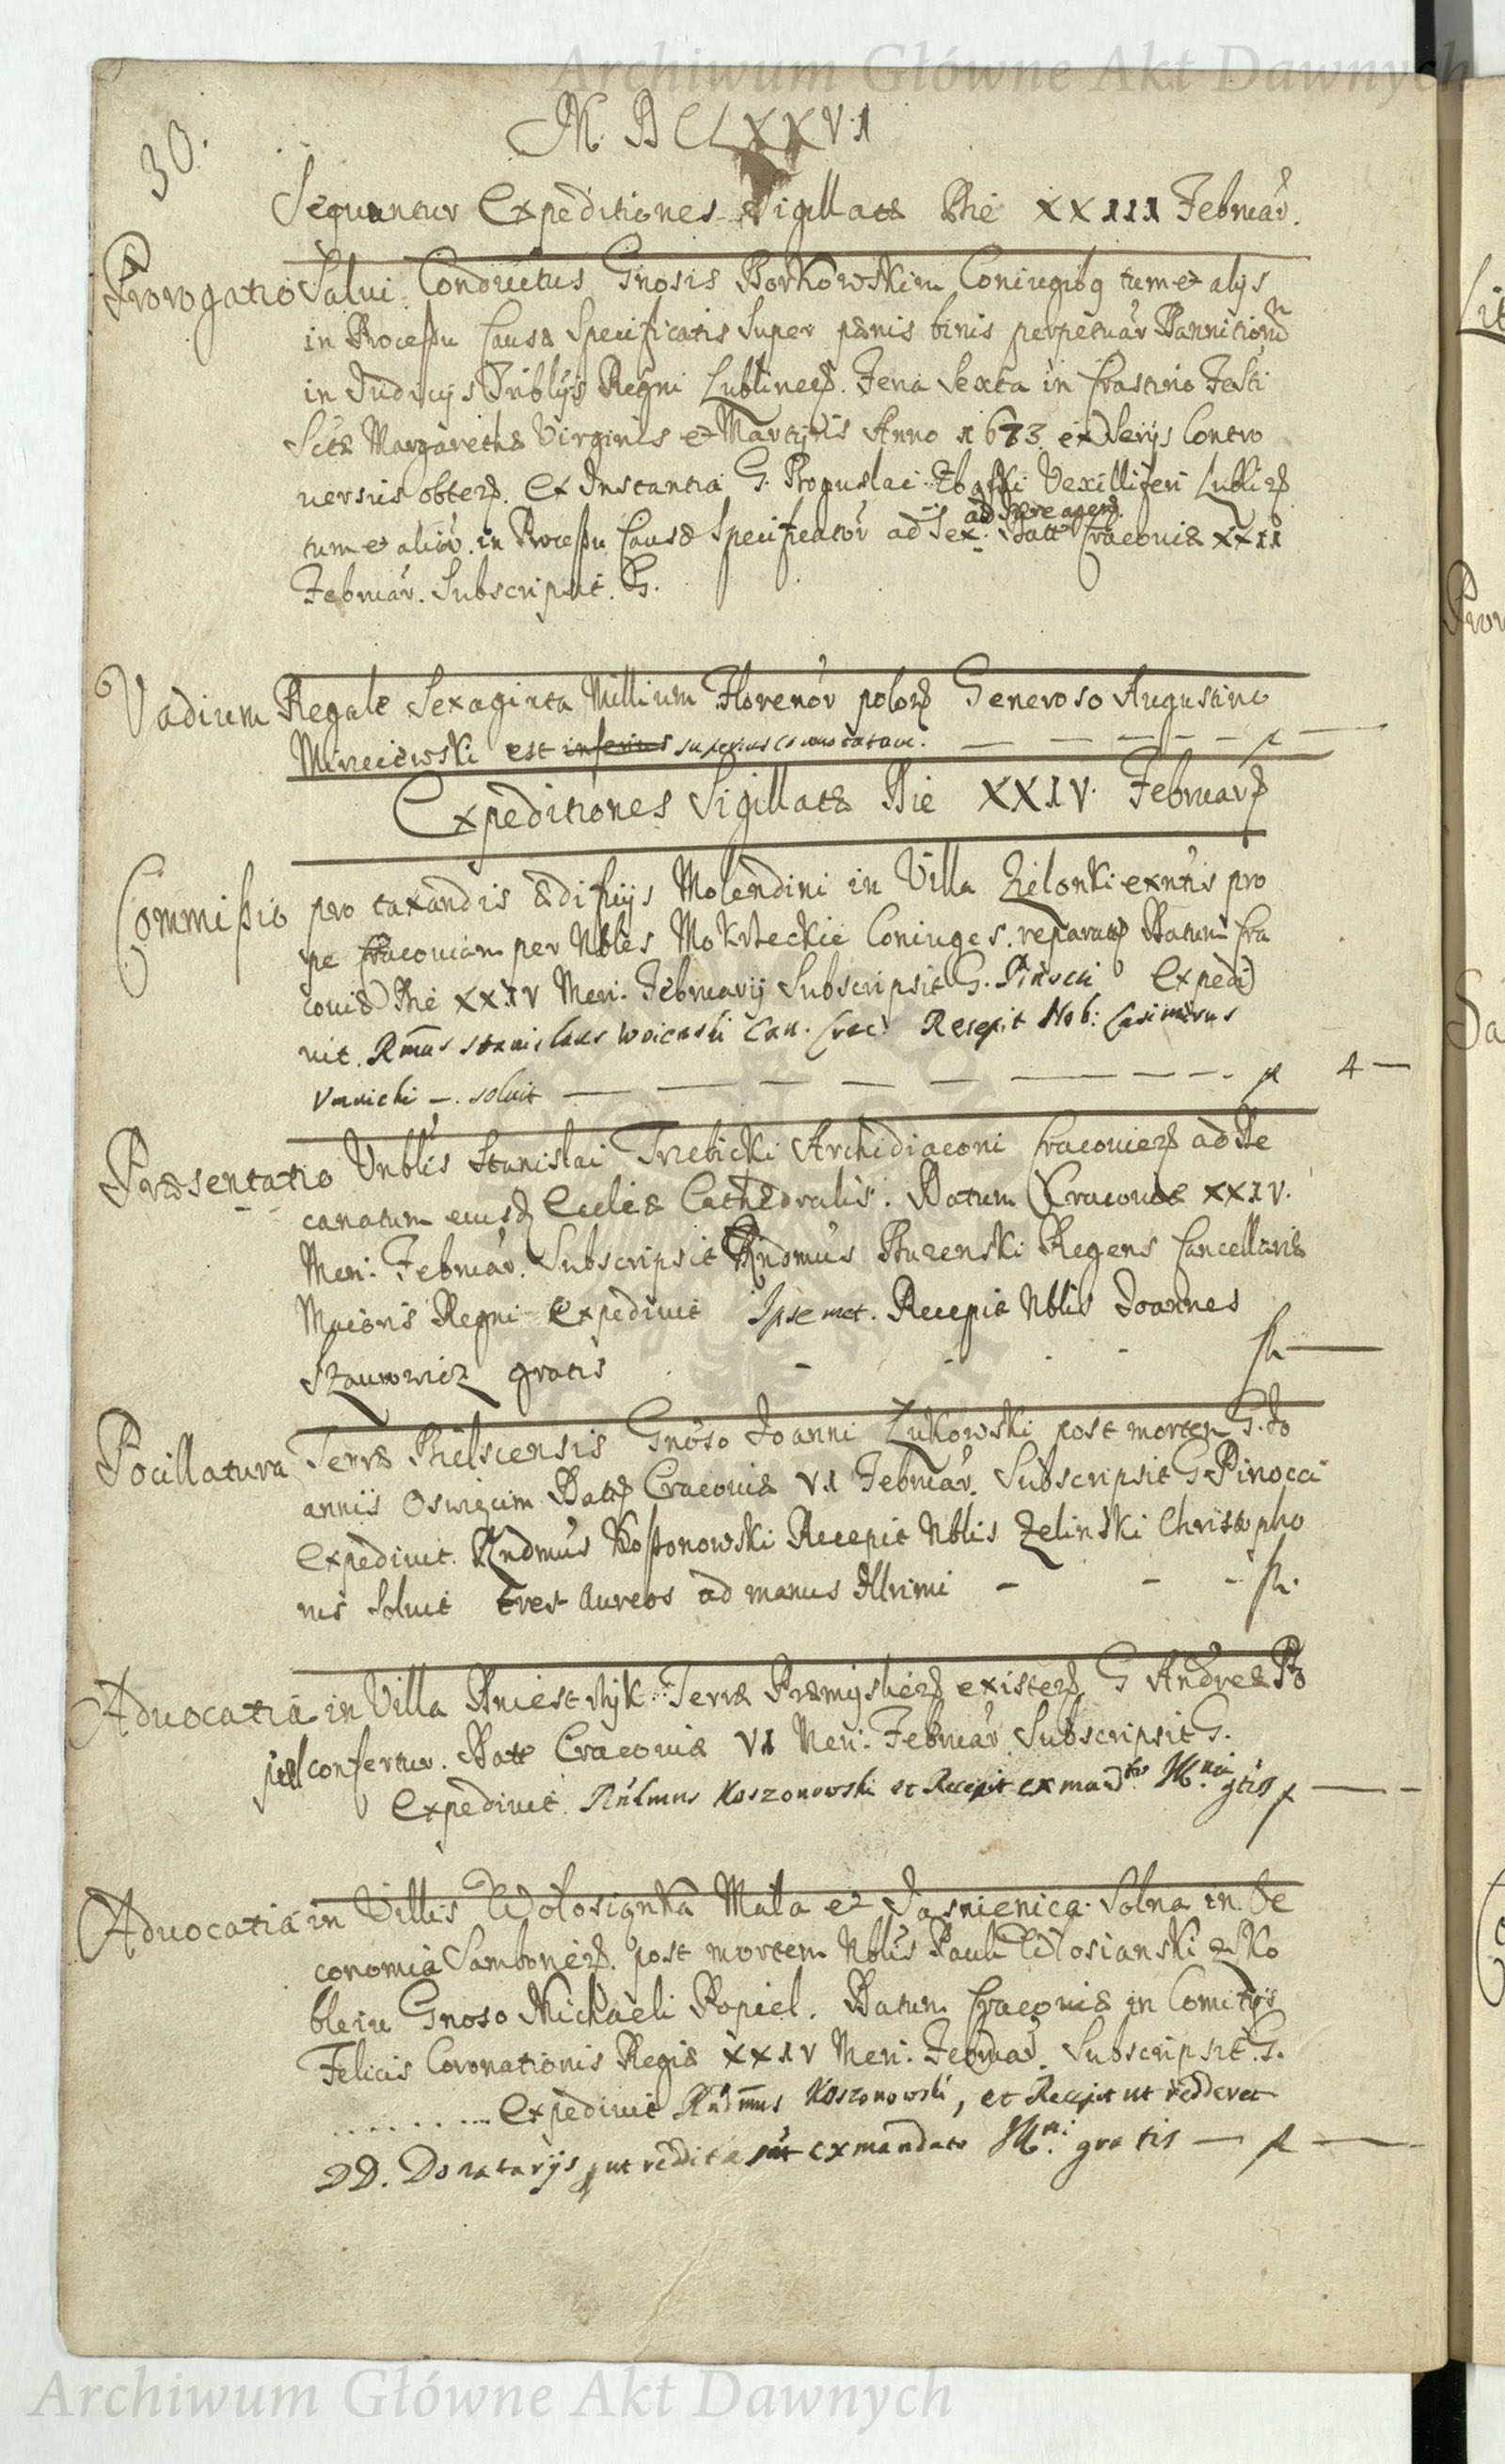 Archiwum Główne Akt Dawnych
30.
M. D C L X X V I
Sequuntur Expeditiones Sigillatæ Die XXIII Februar.
Prorogatio Salui Conductus Gnosis Borkowskim Coniugibq tum et alijs
in Processu Causæ Specificatis Super pænis binis perpetuar Bannitionu
in Judicijs Triblijs Regni Lublinen. Feria Sexta in Crastino Festi
Sctæ Margarethæ Virginis et Martyris Anno 1673 ex Serijs Contro
uersiis obten. Ex Instantia G. Boguslai Zbąski Vexilliferi Lublin
tum et alior. in Processu Causæ Specificator ad Sex. Datt Cracouiæ XXII
Februar. Subscripsit. G.
Vadium Regale Sexaginta Millium Florenor polon Generoso Augustino
Mirzeiewski est inferius superius connotatum. — — — — — —
Expeditiones Sigillatæ Die XXIV. Februar
Commissio pro taxandis ædificijs Molendini in Villa Zielonki exntis pro
pe Cracouiam per Nbles Mokrseckie Coniuges. reparat Datum Cra
couiæ Die XXIV Men. Februarij Subscripsit G. Pinocci Expedi
uit. Rmus Stanislaus Woienski Can. Crac: Recepit Nob: Casimirus
—. soluit — — — — — — — — 4 —
Præsentatio Vnblis Stanislai Trzebicki Archidiaconi Cracouien ad De
canatum eiusd Eccliæ Cathedralis. Datum Cracouiæ XXIV.
Men. Februar. Subscripsit Rndmus Buzenski Regens Cancellariæ
Maioris Regni Expediuit Ipsemet. Recepit Nblis Joannes
Szaurowicz gratis - - - -
Pocillatura Terræ Chelscensis Gnoso Joanni Zukowski post mortem G. Jo
annis Oswięcim Datt Cracouiæ VI Februar. Subscripsit G Pinocci
Expediuit. Rndmus Kossonowski Recepit Nblis Zelinski Christopho
rus Soluit tres aureos ad manus Illrimi - - -
Aduocatia in Villa Dniestrzyk Terræ Præmyslien existen G Andreæ Po
piel confertur. Datt Cracouiæ VI Men. Februar Subscripsit G.
Expediuit. Rndmus Koszonowski et Recepit ex mandto Mni gtis
Aduocatia in Villis Wołosianka Mała et Jasnienica Solna in Oe
conomia Samborien. post mortem Nblis Pauli Wlosianski et Ko
bleiu Gnoso Michaeli Popiel. Datum Cracouiæ in Comitijs
Felicis Coronationis Regiæ XXIV Men. Februar. Subscripsit. G.
......... Expediuit Rndmus Koszonowski, et Recepit ut redderet
DD. Donatarijs, ut reddita sut ex mandato Mni. gratis —
Archiwum Główne Akt Dawnych